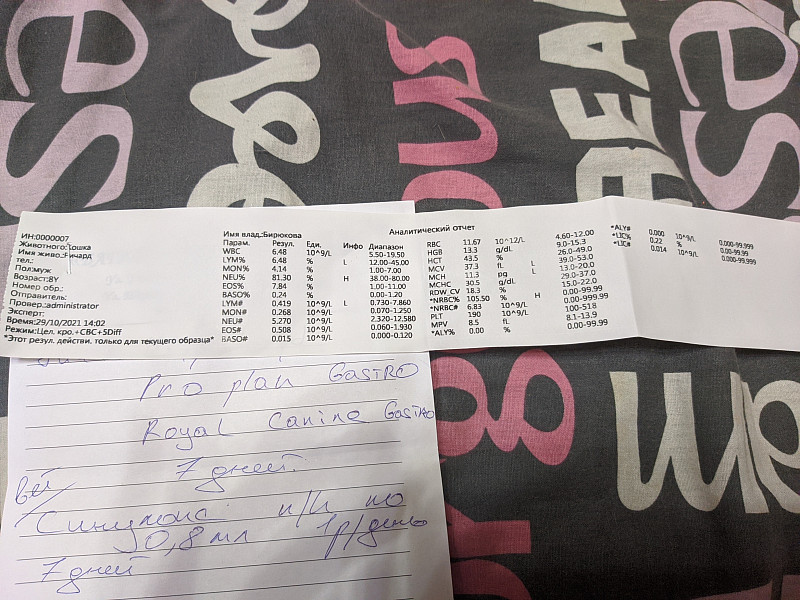 Аналитический отчет
ИН:0000007
Животного:Кошка
Имя живо.:Ричард
тел.:
Пол:муж
Возраст:8Y
Номер обр.:
Отправитель:
Провер.:administrator
Эксперт:
Время:29/10/2021 14:02
Режим:Цел. кро.+CBC+5Diff
*Этот резул. действи. только для текущего образца*
Имя влад.:Бирюкова
Парам. Резул. Еди. Инфо Диапазон
WBC 6.48 10^9/L 5.50-19.50
LYM% 6.48 % L 12.00-45.00
MON% 4.14 % 1.00-7.00
NEU% 81.30 % H 38.00-80.00
EOS% 7.84 % 1.00-11.00
BASO% 0.24 % 0.00-1.20
LYM# 0.419 10^9/L L 0.730-7.860
MON# 0.268 10^9/L 0.070-1.250
NEU# 5.270 10^9/L 2.320-12.580
EOS# 0.508 10^9/L 0.060-1.930
BASO# 0.015 10^9/L 0.000-0.120
RBC 11.67 10^12/L 4.60-12.00
HGB 13.3 g/dL 9.0-15.3
HCT 43.5 % 26.0-49.0
MCV 37.3 fL L 39.0-53.0
MCH 11.3 pg L 13.0-20.0
MCHC 30.5 g/dL 29.0-37.0
RDW_CV 18.3 % 15.0-22.0
*NRBC% 105.50 % H 0.00-99.99
*NRBC# 6.83 10^9/L 0.00-999.99
PLT 190 10^9/L 100-518
MPV 8.5 fL 8.1-13.9
*ALY% 0.00 % 0.00-99.99
*ALY# 0.000 10^9/L 0.000-99.999
*LIC% 0.22 % 0.00-99.99
*LIC# 0.014 10^9/L 0.000-99.999
Pro plan Gastro
Royal Canine Gastro
7 дней.
вет
Синулокс п/к по
0,8 мл 1р/день
7 дней